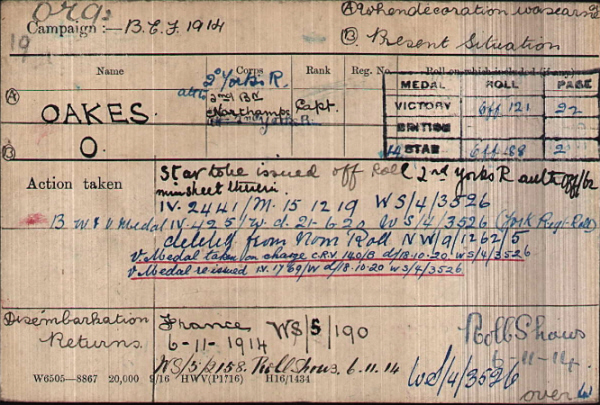 Org2
(A) When decoration was earned
Campaign :— B.E.F. 1914
(B) Present Situation
19
Name Corps Rank Reg. No. Roll on which included (if any)
(A) OAKES.
attd 2nd Yorks R.
2nd Bn
Northamps Capt.
MEDAL ROLL PAGE
VICTORY Off 121 22
BRITISH
14 STAR Off 188 2
(B) O.
Action taken
Star to be issued off Roll 2nd Yorks R auth Off/62
IV. 2441/M. 15 12 19 WS/4/3526
B W & V Medal IV-425/W d. 21-6-20 WS/4/3526 (York Regt. Roll)
deleted from Nom Roll NW/9/1262/5
V. Medal taken on charge C.R.V. 140/B d/18.10.20 WS/4/3526
V. Medal re-issued IV. 1769/W d/18.10.20 WS/4/3526
Disembarkation
Returns.
France WS/5/190
6-11-1914
Roll Shows
6-11-14.
WS/5/2158. Roll Shows. 6.11.14
WS/4/3526
over
W6505—8867 20,000 9/16 HWV(P1716) H16/1434